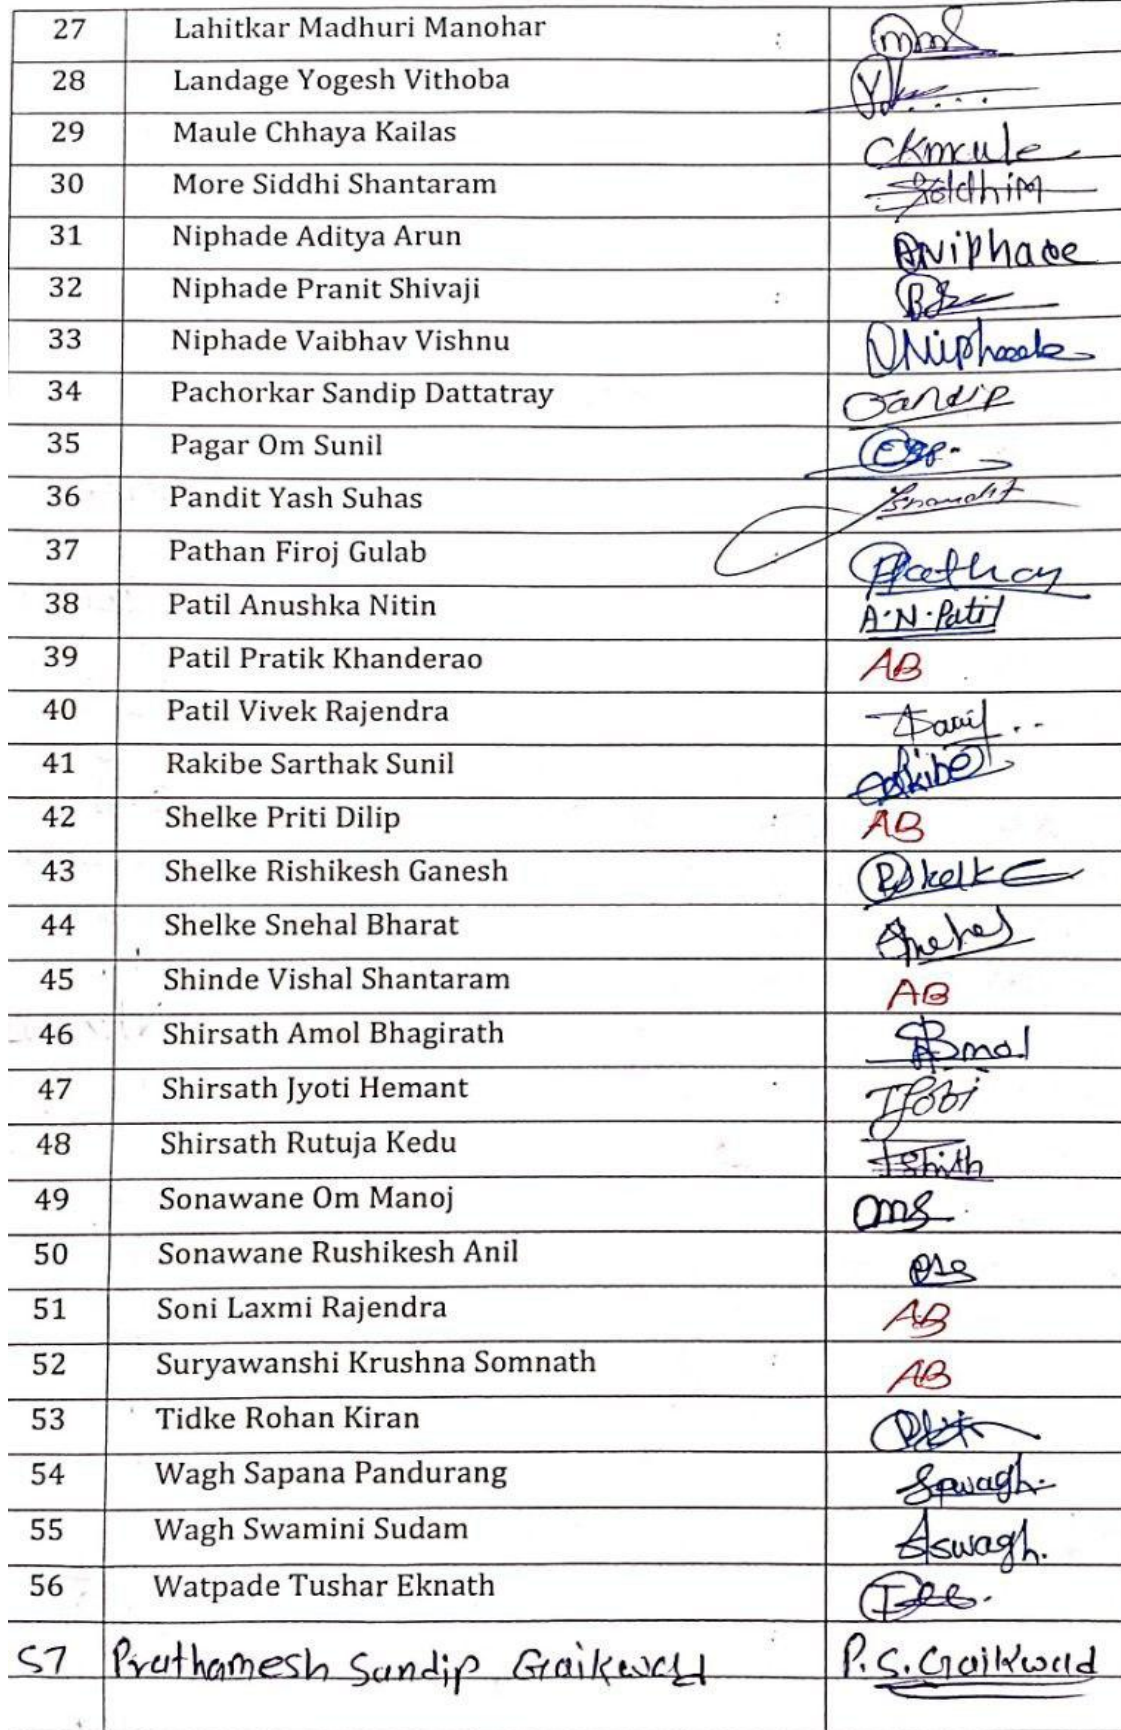 27 Lahitkar Madhuri Manohar mms
28 Landage Yogesh Vithoba
29 Maule Chhaya Kailas CKmaule
30 More Siddhi Shantaram SiddhiM
31 Niphade Aditya Arun ANiphade
32 Niphade Pranit Shivaji
33 Niphade Vaibhav Vishnu VNiphade
34 Pachorkar Sandip Dattatray Sandip
35 Pagar Om Sunil
36 Pandit Yash Suhas
37 Pathan Firoj Gulab FPathan
38 Patil Anushka Nitin A.N.Patil
39 Patil Pratik Khanderao AB
40 Patil Vivek Rajendra
41 Rakibe Sarthak Sunil
42 Shelke Priti Dilip AB
43 Shelke Rishikesh Ganesh RShelke
44 Shelke Snehal Bharat Snehal
45 Shinde Vishal Shantaram AB
46 Shirsath Amol Bhagirath
47 Shirsath Jyoti Hemant
48 Shirsath Rutuja Kedu
49 Sonawane Om Manoj OMS
50 Sonawane Rushikesh Anil
51 Soni Laxmi Rajendra AB
52 Suryawanshi Krushna Somnath AB
53 Tidke Rohan Kiran
54 Wagh Sapana Pandurang Spwagh.
55 Wagh Swamini Sudam Sswagh.
56 Watpade Tushar Eknath
57 Prathamesh Sandip Gaikwad P.S.Gaikwad